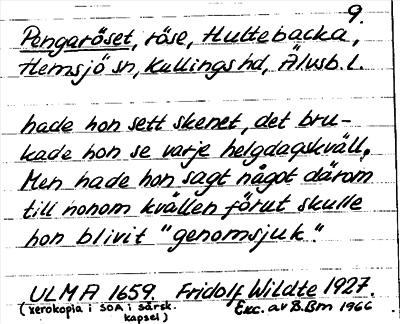 9.
Pengaröset, röse, Hultebacka,
Hemsjö sn, Kullings hd, Älvsb. l.
hade hon sett skenet, det bru-
kade hon se varje helgdagskväll.
Men hade hon sagt något därom
till nonom kvällen förut skulle
hon blivit "genomsjuk."
ULMA 1659. Fridolf Wildte 1927.
(xerokopia i SOA i särsk. Exc. av B.Bm 1966
kapsel)